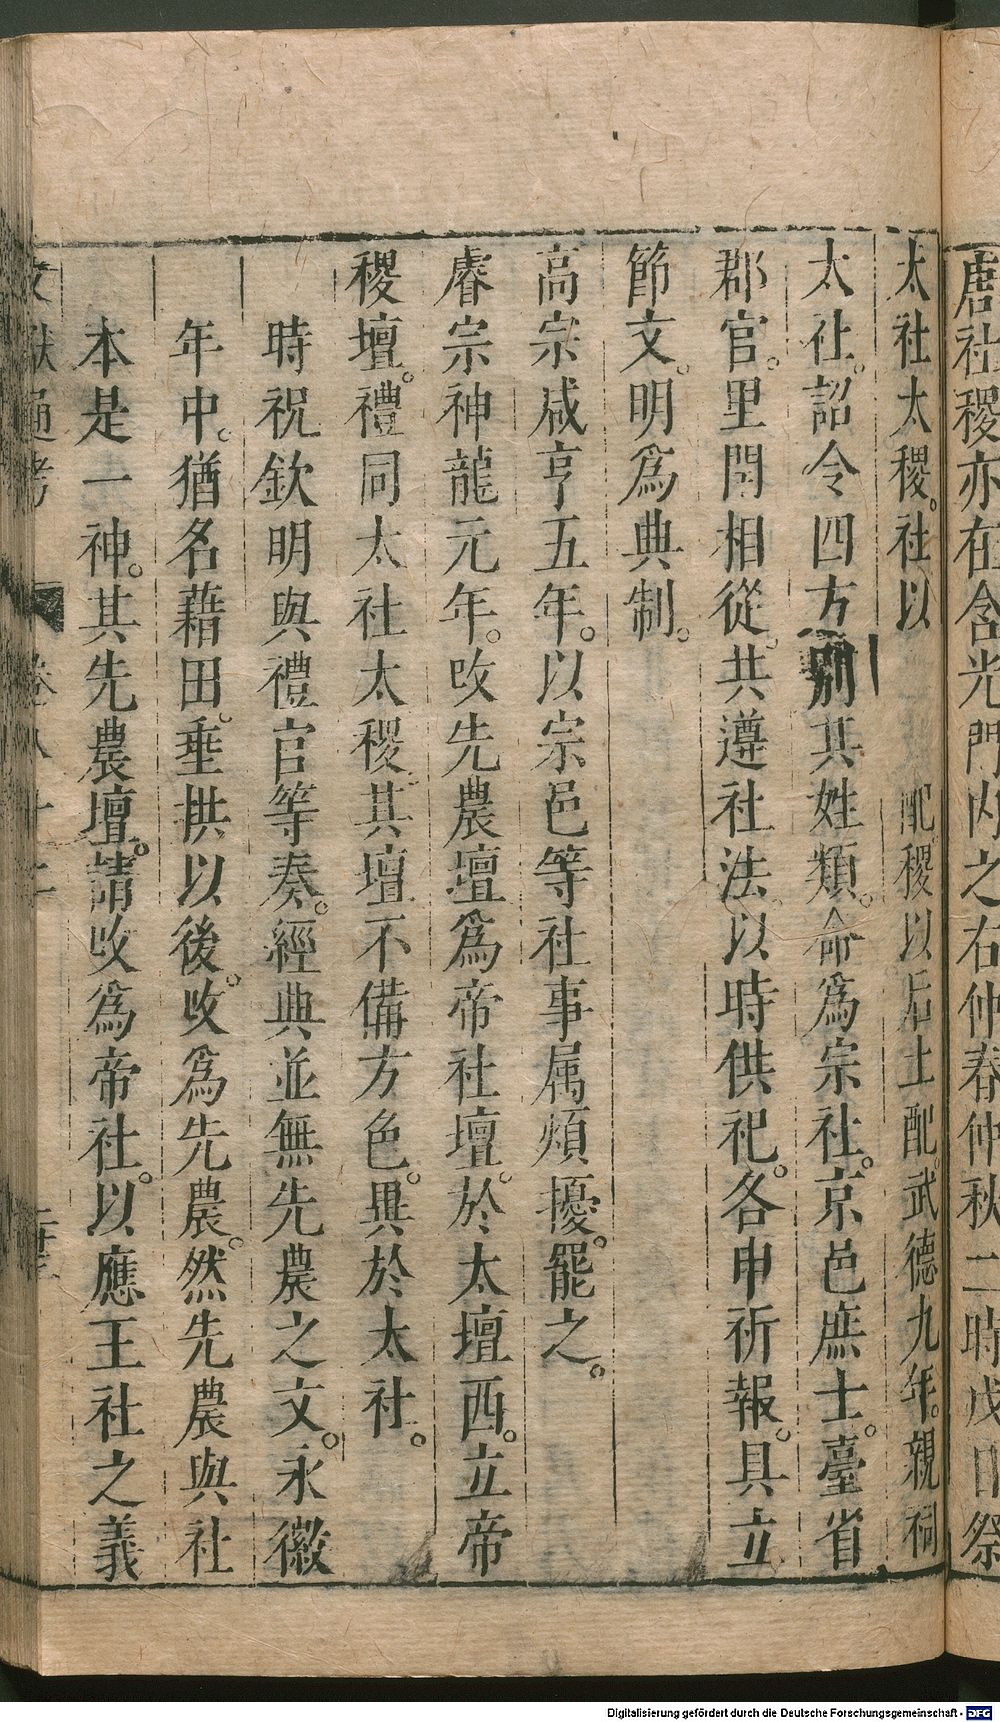 唐社稷亦在含光門內之右仲春仲秋二時戊日祭
太社太稷。社以配稷以后土配。武德九年。親祠
太社。詔令四方別其姓類。命爲宗社。京邑庶士。臺省
郡官。里閈相從。共遵社法。以時供祀。各申祈報。具立
節文。明爲典制。
高宗咸亨五年。以宗邑等社事属煩擾。罷之。
睿宗神龍元年。攺先農壇爲帝社壇。於太壇西。立帝
稷壇。禮同太社太稷。其壇不備方色。異於太社。
時祝欽明與禮官等奏。經典並無先農之文。永徽
年中。猶名藉田。垂拱以後。攺爲先農。然先農與社
本是一神。其先農壇。請攺爲帝社。以應王社之義
文獻通考
卷八十二
Digitalisierung gefördert durch die Deutsche Forschungsgemeinschaft - DFG